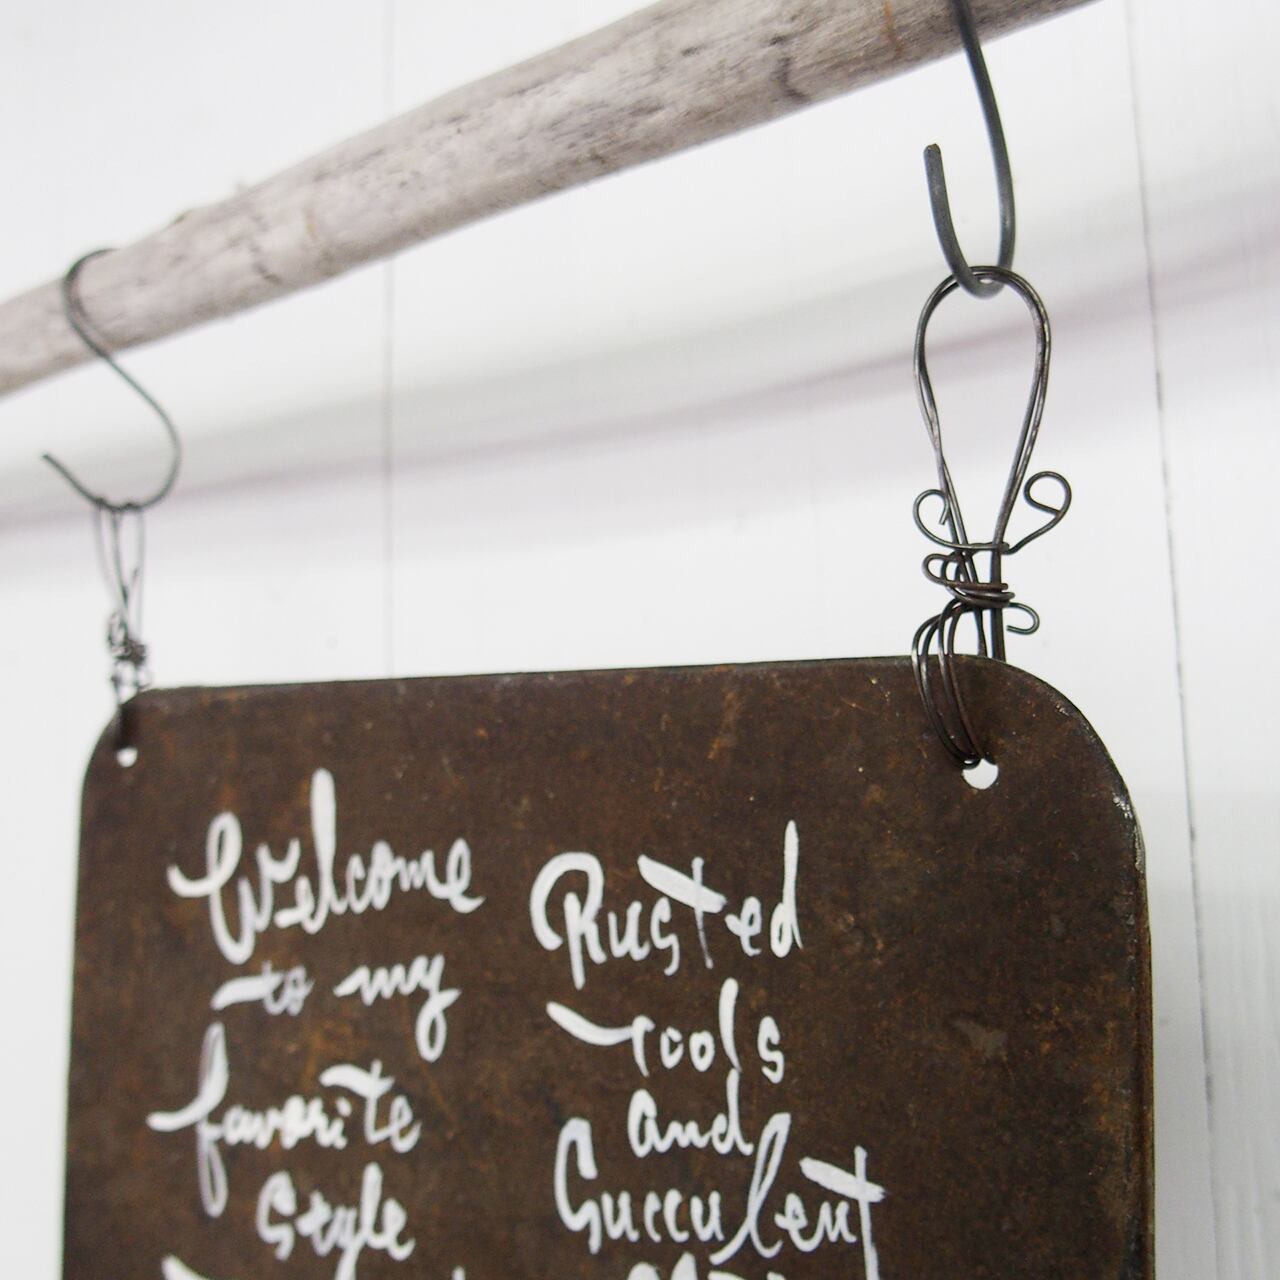 Welcome
to my
favorite
Style
Rusted
Tools
and
Succulent